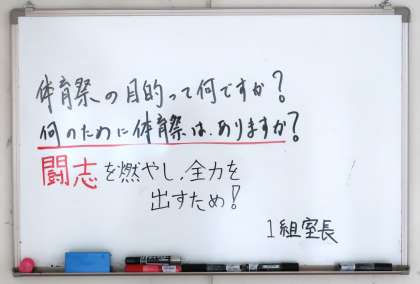 体育祭の目的って何ですか?
何のために体育祭は、ありますか?
闘志を燃やし、全力を
出すため!
1組室長